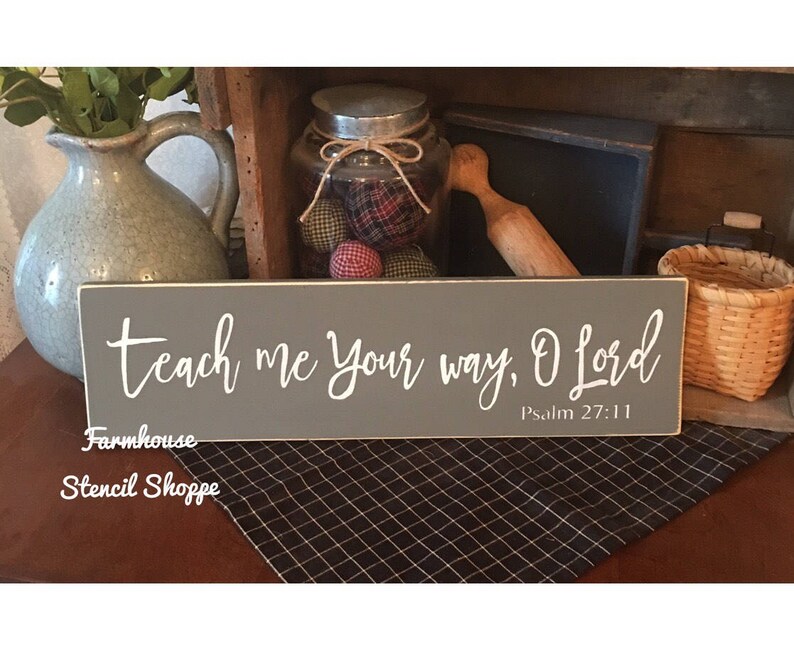 teach me Your way, O Lord
Psalm 27:11
Farmhouse
Stencil Shoppe